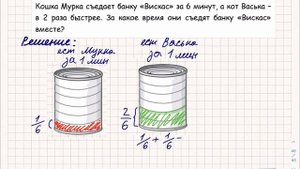 Кошка Мурка съедает банку «Вискас» за 6 минут, а кот Васька -
в 2 раза быстрее. За какое время они съедят банку «Вискас»
вместе?
Решение:
ест Мурка
за 1 мин
ест Васька
за 1 мин
1/6
2/6
1/6 + 1/6 -